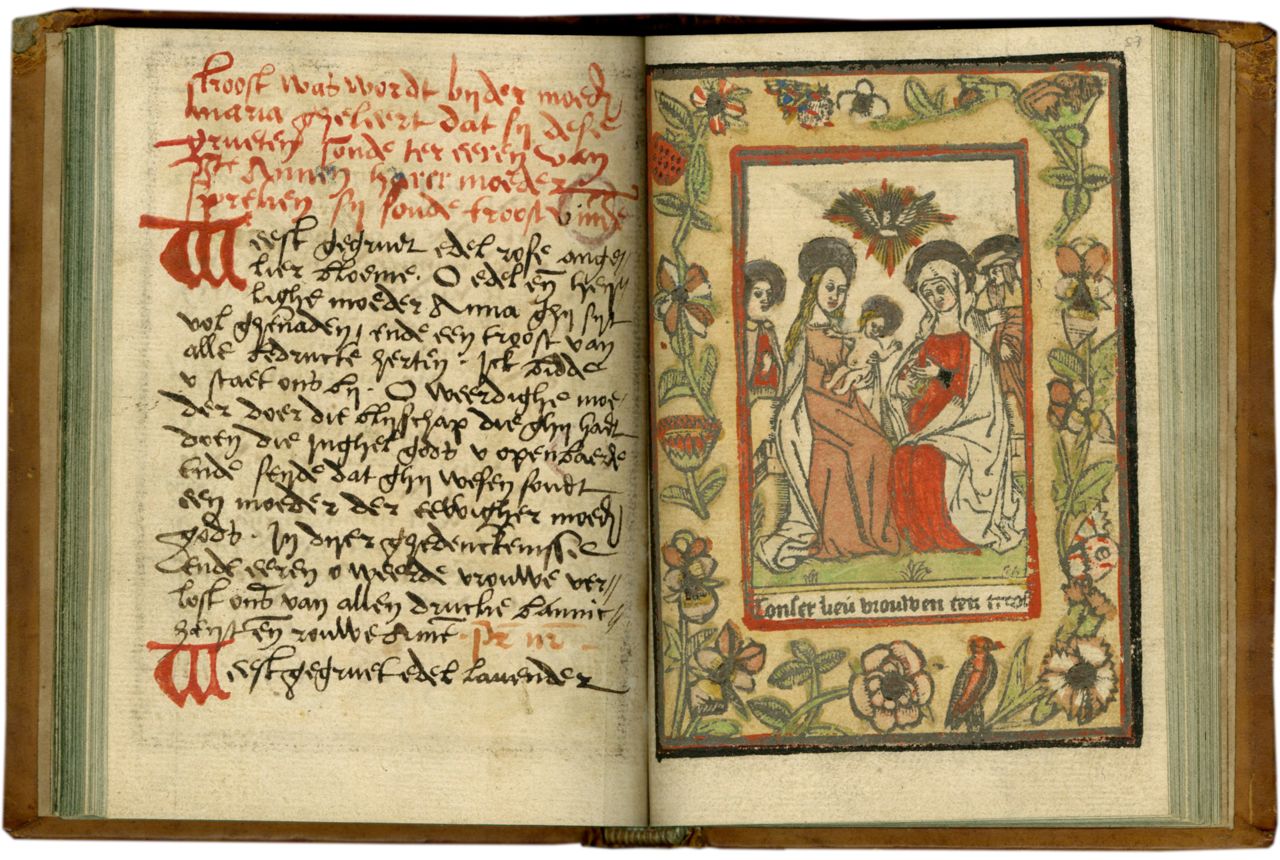 troost was wordt bijder moed
maria gheleert dat sij dese
grueten soude ter eeren van
Ste Annen harer moeder
spreken sij soude troost vinde
Weest gegruet edel rose ange//
lier bloeme. O edel en̄ hey//
lighe moeder Anna ghij sijt
vol ghenaden/ ende een troost van
alle bedructe herten. Ick bidde
v staet ons bij. O weerdighe moe-
der doer die blijschap die ghij hadt
doen die Inghel gods v openbaerde
Ende seyde dat ghij wesen soudt
een moeder der eewigher moed
gods. In dijer ghedenckenisse
ende eeren o weerde vrouwe ver//
lost ons van allen drucke bannic-
heyt en̄ rouwe Amē. Pr̄ nr̄
Weest gegruet edel lauender
87
Tonser lieū vrouwen ten troost